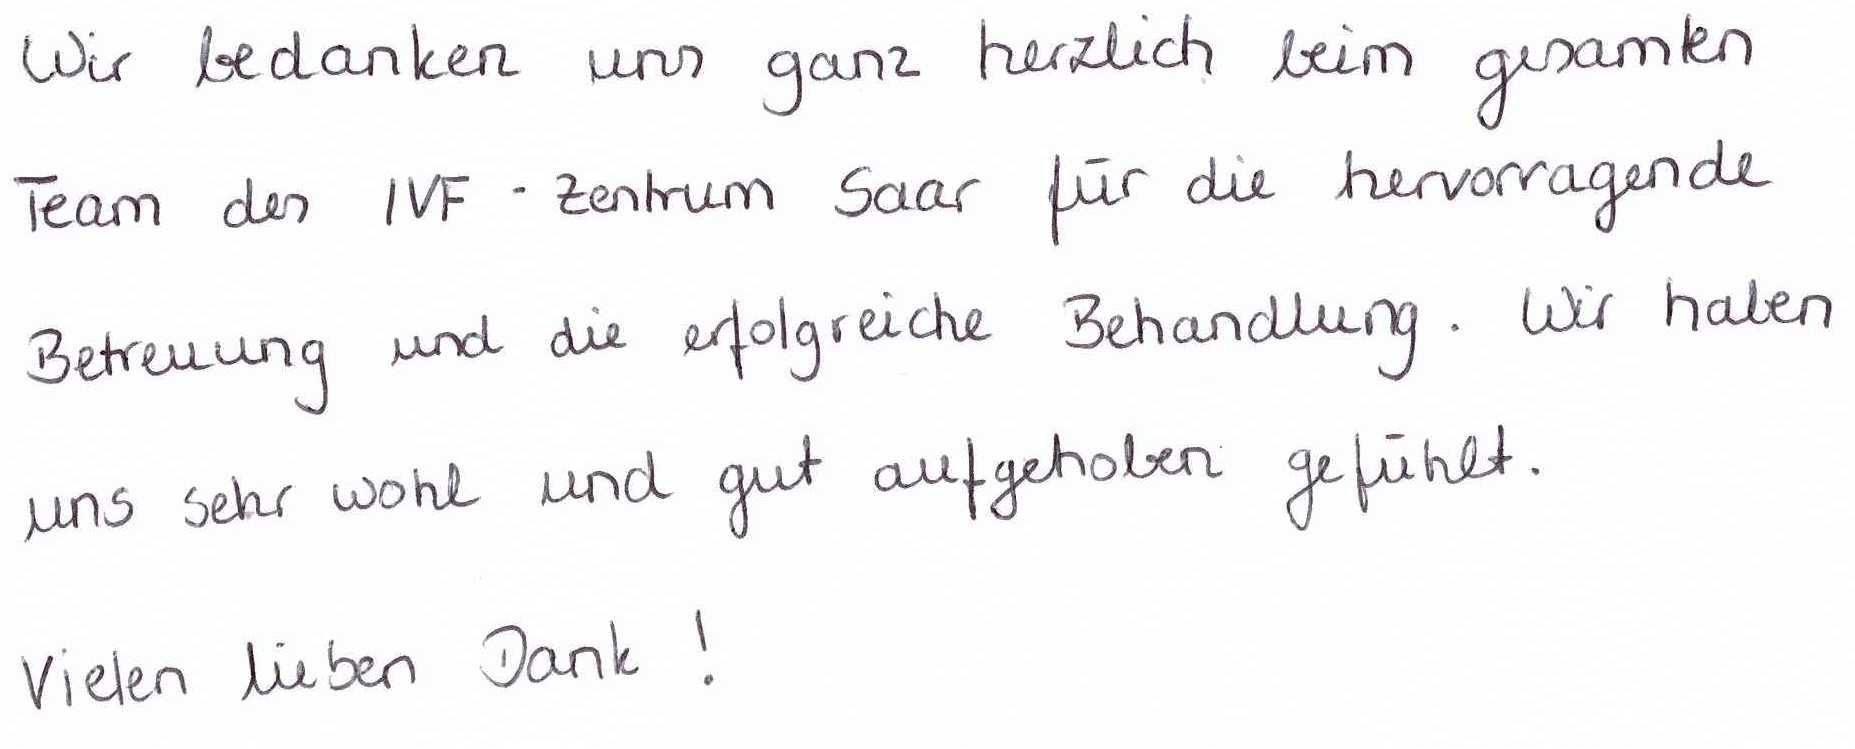 Wir bedanken uns ganz herzlich beim gesamten
Team des IVF - Zentrum Saar für die hervorragende
Betreuung und die erfolgreiche Behandlung. Wir haben
uns sehr wohl und gut aufgehoben gefühlt.
Vielen lieben Dank !